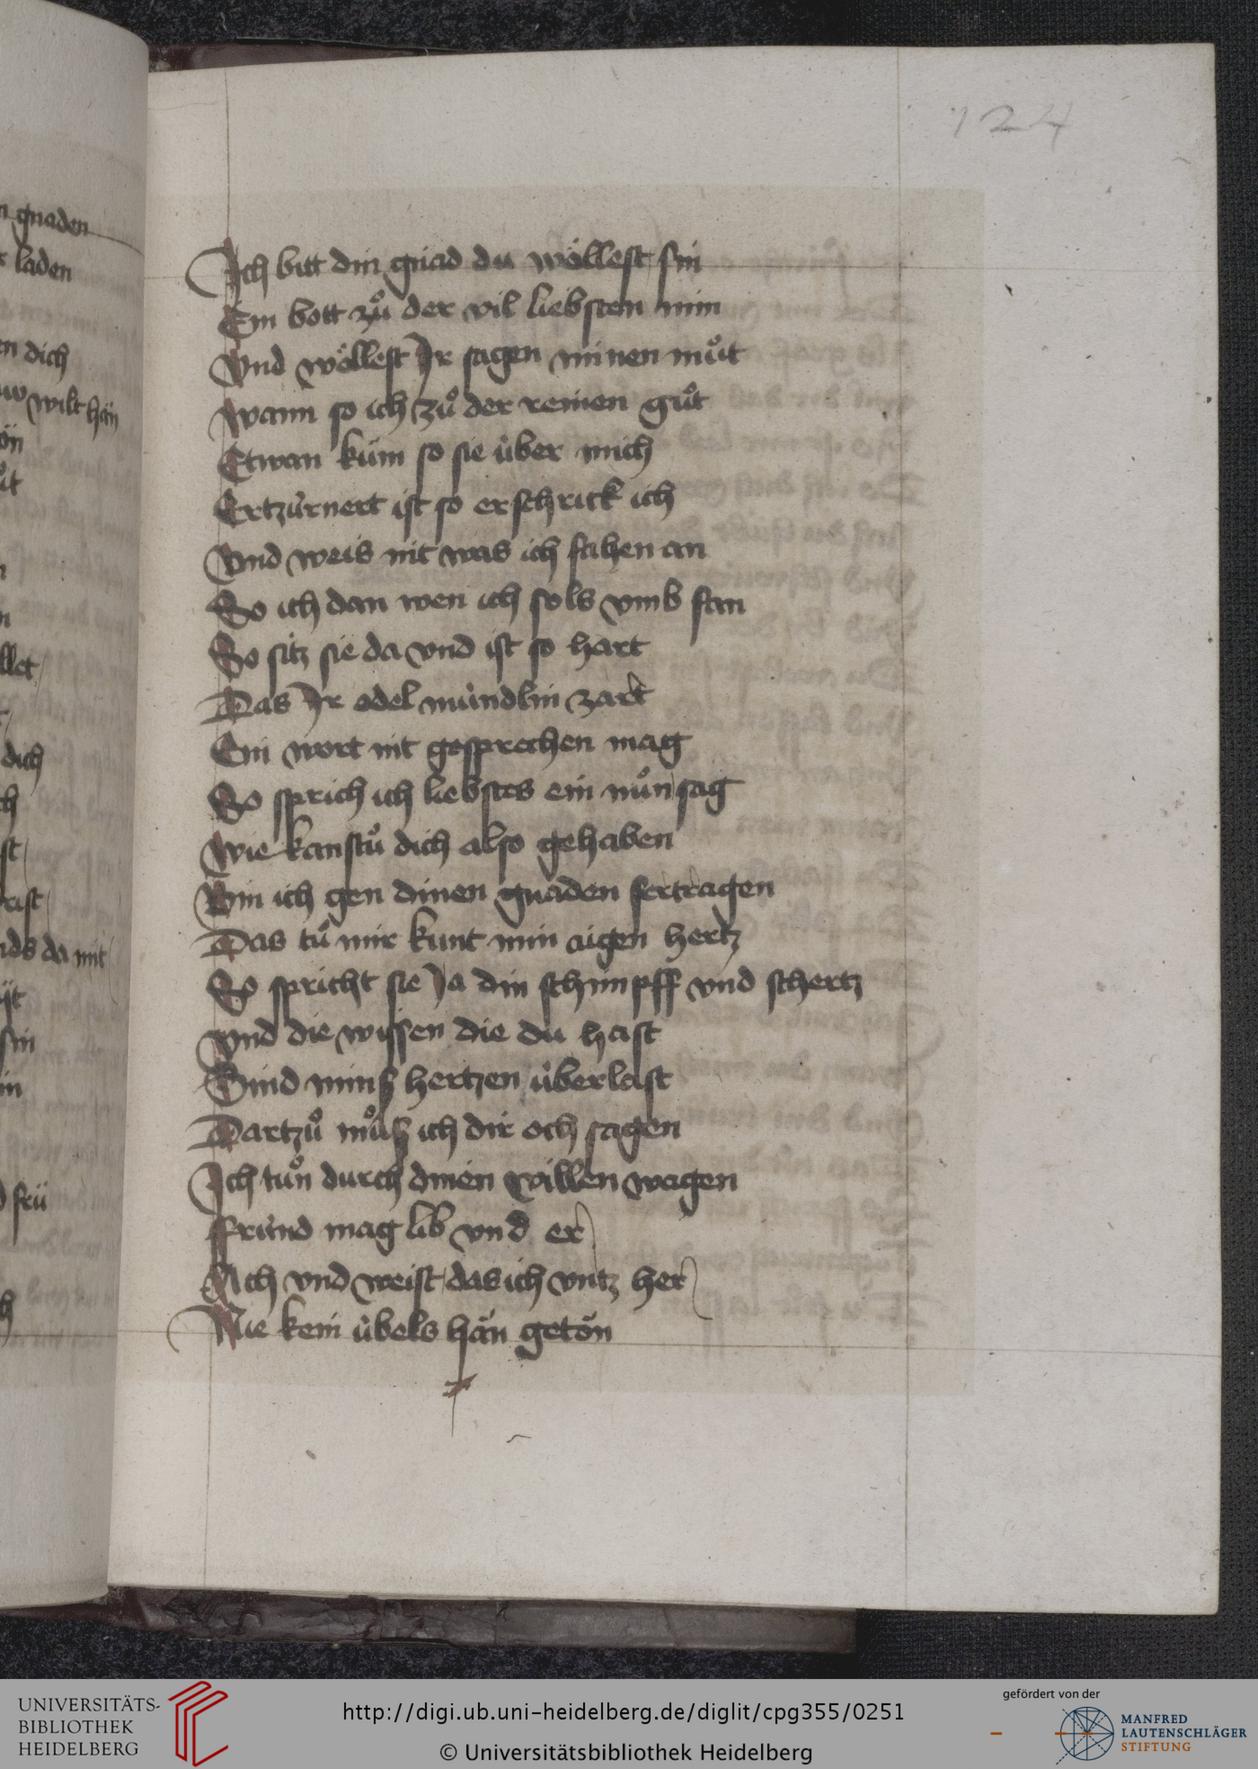 124
Ich bitt din gnad du wöllest sin
Ein bott zů der vil liebsten min
Vnd wöllest Ir sagen minen můt
Wann so ich zů der reinen gůt
Etwan küm so sie über mich
Ertzürnert ist so erschrick ich
Vnd weis nit was ich fahen an
So ich dan wen ich sols vmb fan
So sitz sie da vnd ist so hart
Das Ir edel mündlin zart
Ein wort nit gesprechen mag
So sprich ich liebstes ein nůn sag
Wie kanstů dich also gehaben
Bin ich gen dinen gnaden fertragen
Das tů mir kunt min aigen hertz
So spricht sie Ja din schimpff vnd schertz
Vnd die wissen die du hast
Sind minß hertzen überlast
Dartzů můß ich dir och sagen
Ich tůn durch dinen willen wagen
Fründ mag lib vnd er
Ach vnd weist das ich vntz her
Nie kein übels hän getön
gnaden
laden
dich
wilt hän
dich
da mit
sin
frü
UNIVERSITÄTS-
BIBLIOTHEK
HEIDELBERG
http://digi.ub.uni-heidelberg.de/diglit/cpg355/0251
© Universitätsbibliothek Heidelberg
gefördert von der
MANFRED
LAUTENSCHLÄGER
STIFTUNG